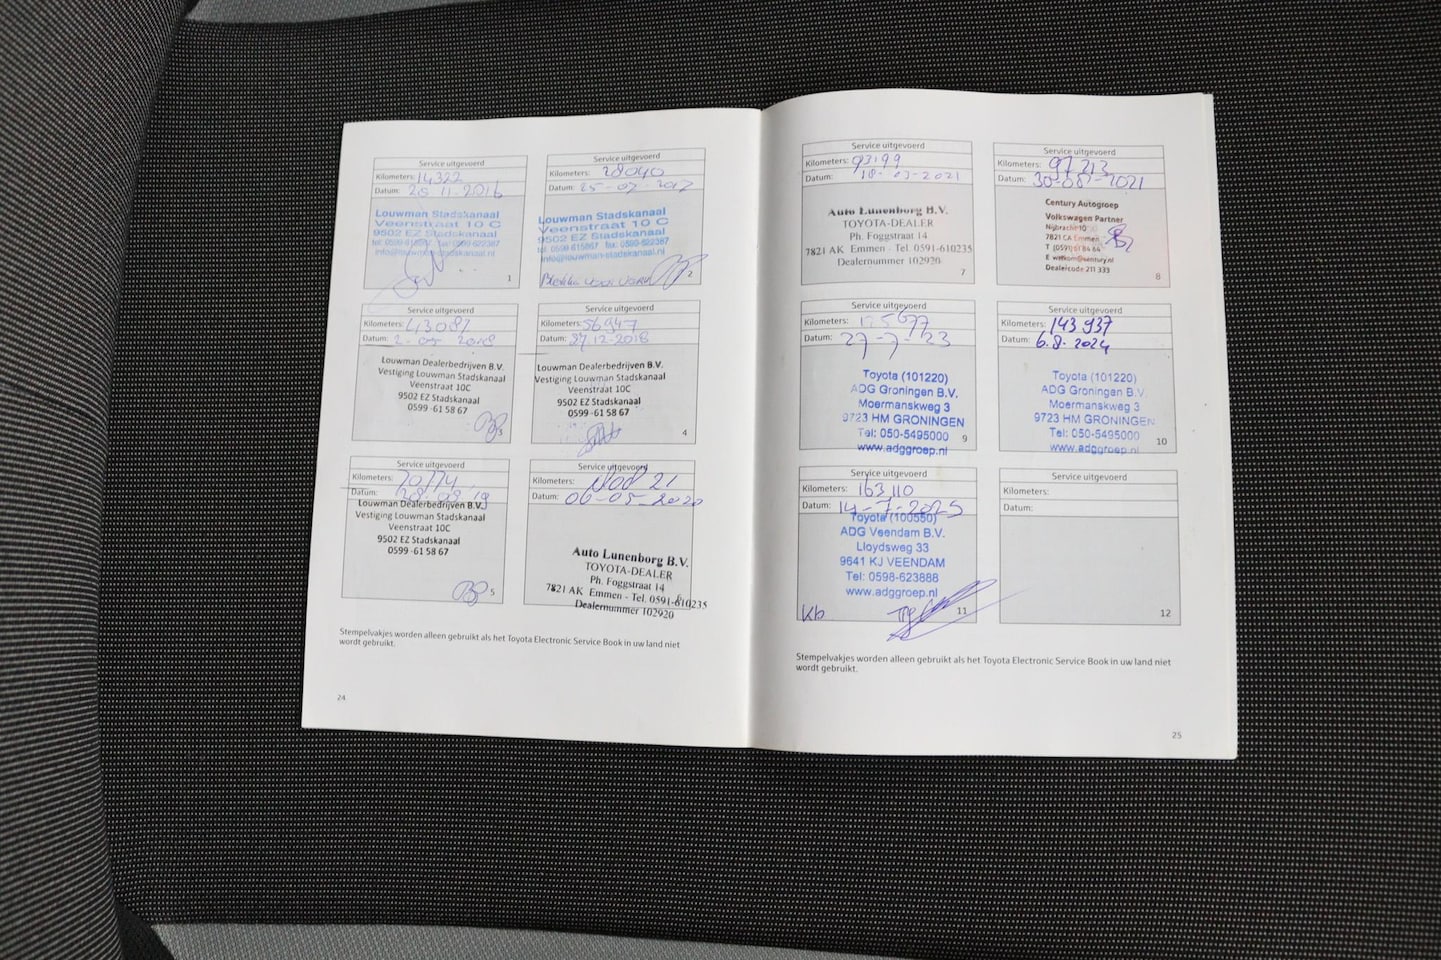 Service uitgevoerd
Kilometers: 14322
Datum: 2011-2016
Louwman Stadskanaal
Veenstraat 10 C
9502 EZ Stadskanaal
tel: 0599-615867 fax: 0599-622387
info@louwman-stadskanaal.nl
1
Service uitgevoerd
Kilometers: 28040
Datum: 25-07-2017
Louwman Stadskanaal
Veenstraat 10 C
9502 EZ Stadskanaal
tel. 0599-615867 fax: 0599-622387
info@louwman-stadskanaal.nl
2
Service uitgevoerd
Kilometers: 43081
Datum: 2-05 2018
Louwman Dealerbedrijven B.V.
Vestiging Louwman Stadskanaal
Veenstraat 10C
9502 EZ Stadskanaal
0599-61 58 67
3
Service uitgevoerd
Kilometers: 56947
Datum: 12-2018
Louwman Dealerbedrijven B.V.
Vestiging Louwman Stadskanaal
Veenstraat 10C
9502 EZ Stadskanaal
0599-61 58 67
4
Service uitgevoerd
Kilometers: 70174
Datum:
Louwman Dealerbedrijven B.V.
Vestiging Louwman Stadskanaal
Veenstraat 10C
9502 EZ Stadskanaal
0599-61 58 67
5
Service uitgevoerd
Kilometers: 21
Datum: 06-05-2020
Auto Lunenborg B.V.
TOYOTA-DEALER
Ph. Foggstraat 14
7821 AK Emmen - Tel. 0591-610235
Dealernummer 102920
Stempelvakjes worden alleen gebruikt als het Toyota Electronic Service Book in uw land niet
wordt gebruikt.
24
Service uitgevoerd
Kilometers: 93199
Datum: 18-03-2021
Auto Lunenborg B.V.
TOYOTA-DEALER
Ph. Foggstraat 14
7821 AK Emmen - Tel. 0591-610235
Dealernummer 102920
7
Service uitgevoerd
Kilometers: 97213
Datum: 30-08-2021
Century Autogroep
Volkswagen Partner
Nijbracht 10
7821 CA Emmen
T (0591) 61 84 64
E welkom@century.nl
Dealercode 211 333
8
Service uitgevoerd
Kilometers: 125677
Datum: 27-7-23
Toyota (101220)
ADG Groningen B.V.
Moermanskweg 3
9723 HM GRONINGEN
Tel: 050-5495000
www.adggroep.nl
9
Service uitgevoerd
Kilometers: 143 937
Datum: 6.8.2024
Toyota (101220)
ADG Groningen B.V.
Moermanskweg 3
9723 HM GRONINGEN
Tel: 050-5495000
www.adggroep.nl
10
Service uitgevoerd
Kilometers: 163110
Datum: 14-7-2025
Toyota (100550)
ADG Veendam B.V.
Lloydsweg 33
9641 KJ VEENDAM
Tel: 0598-623888
www.adggroep.nl
Kb
11
Service uitgevoerd
Kilometers:
Datum:
12
Stempelvakjes worden alleen gebruikt als het Toyota Electronic Service Book in uw land niet
wordt gebruikt.
25